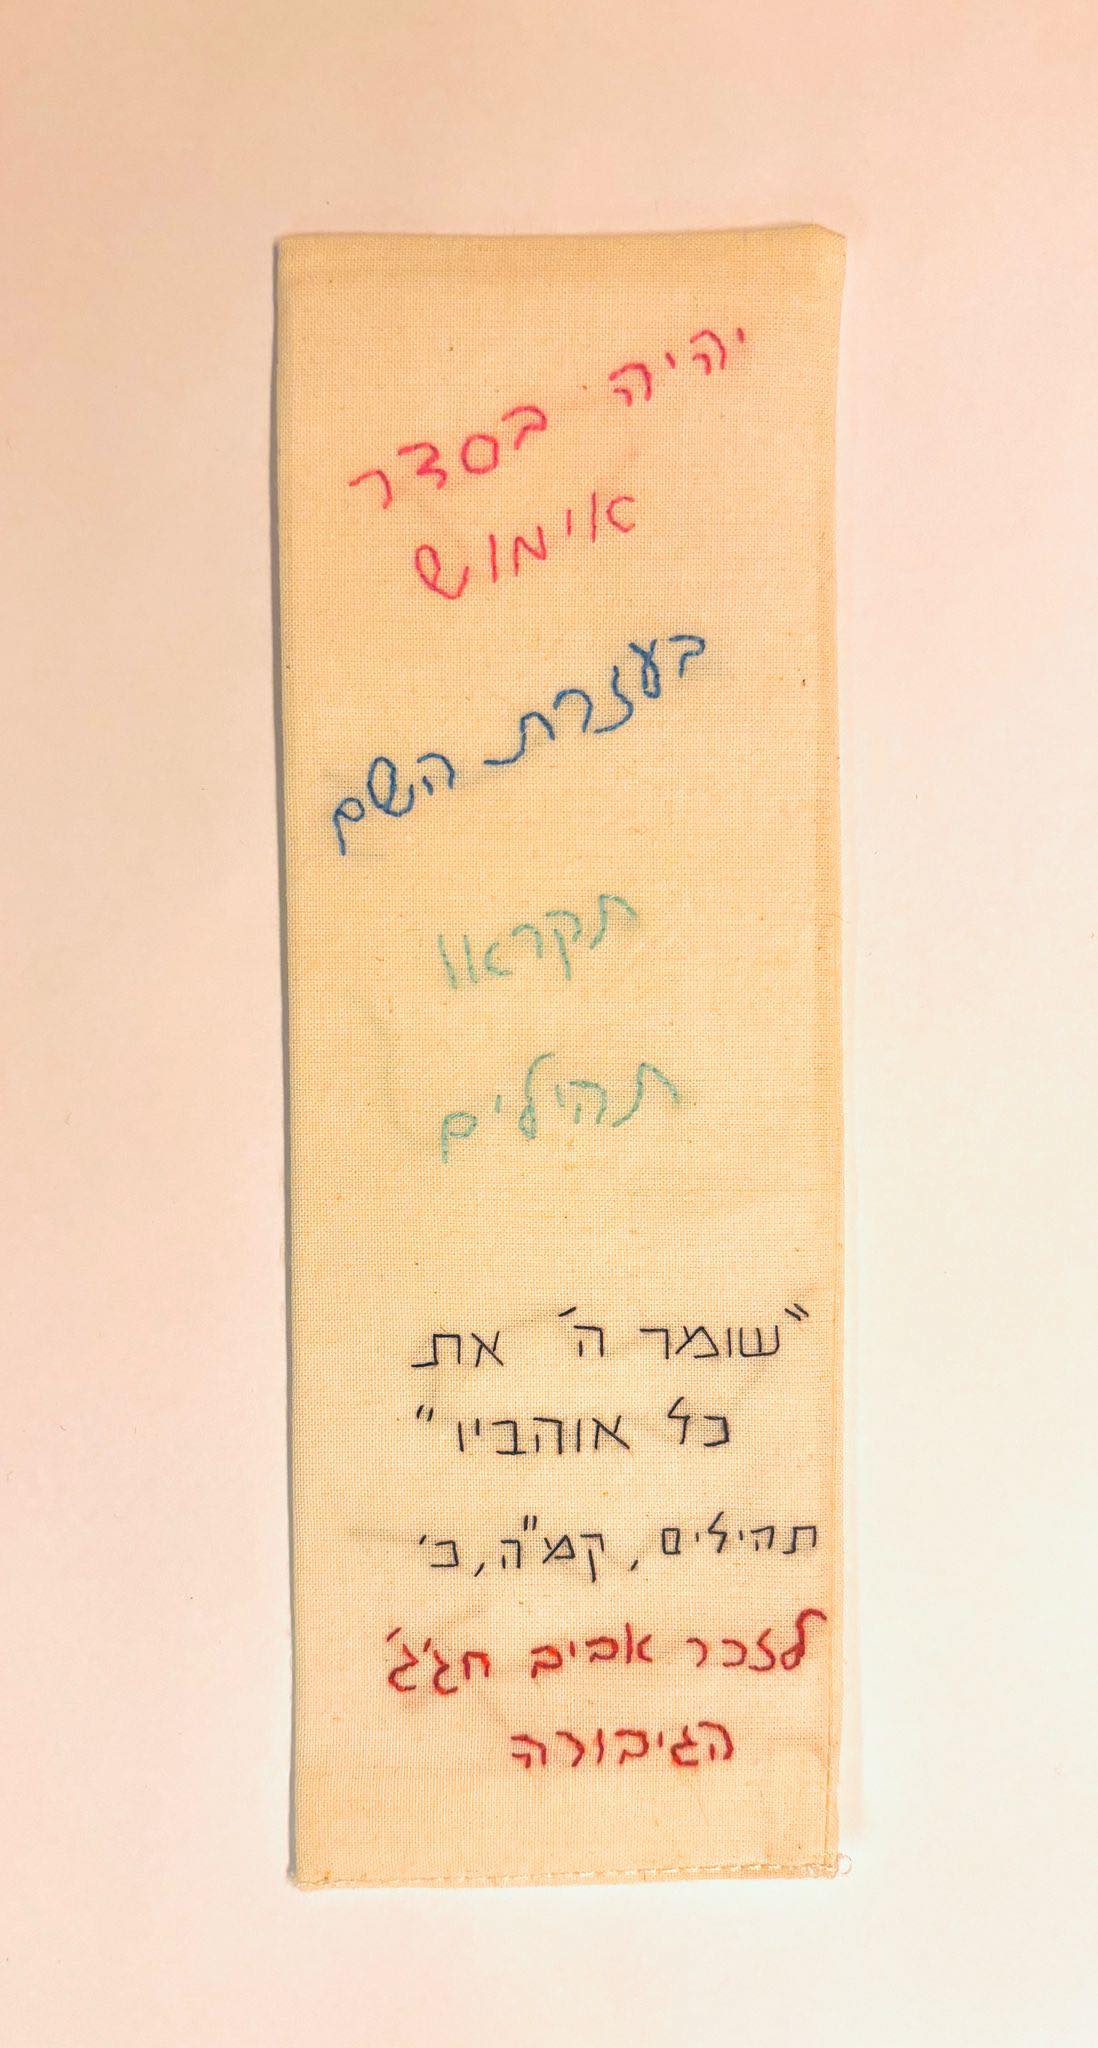 יהיה בסדר
אימוש
בעזרת השם
תקראו
תהילים
"שומר ה' את
כל אוהביו"
תהילים, קמ"ה, כ'
לזכר אביב חג'ג'
הגיבורה